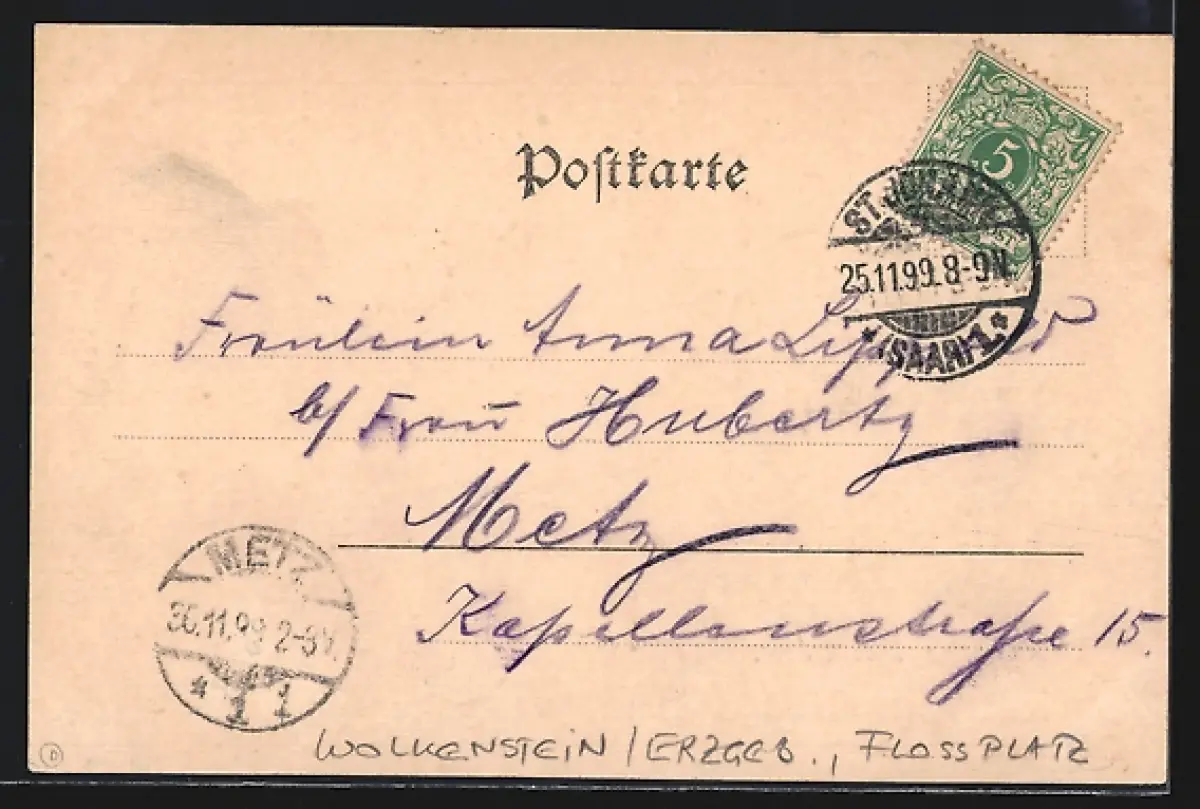 Postkarte
5
ST. JOHANN
25.11.99. 8-9N.
* (SAAR) 1. *
Fräulein Anna
b/ Frau Hubertz
Metz
Kapellenstraße 15.
METZ
11.99 2-3N.
* 1 1
D
WOLKENSTEIN / ERZGEB., FLOSSPLATZ